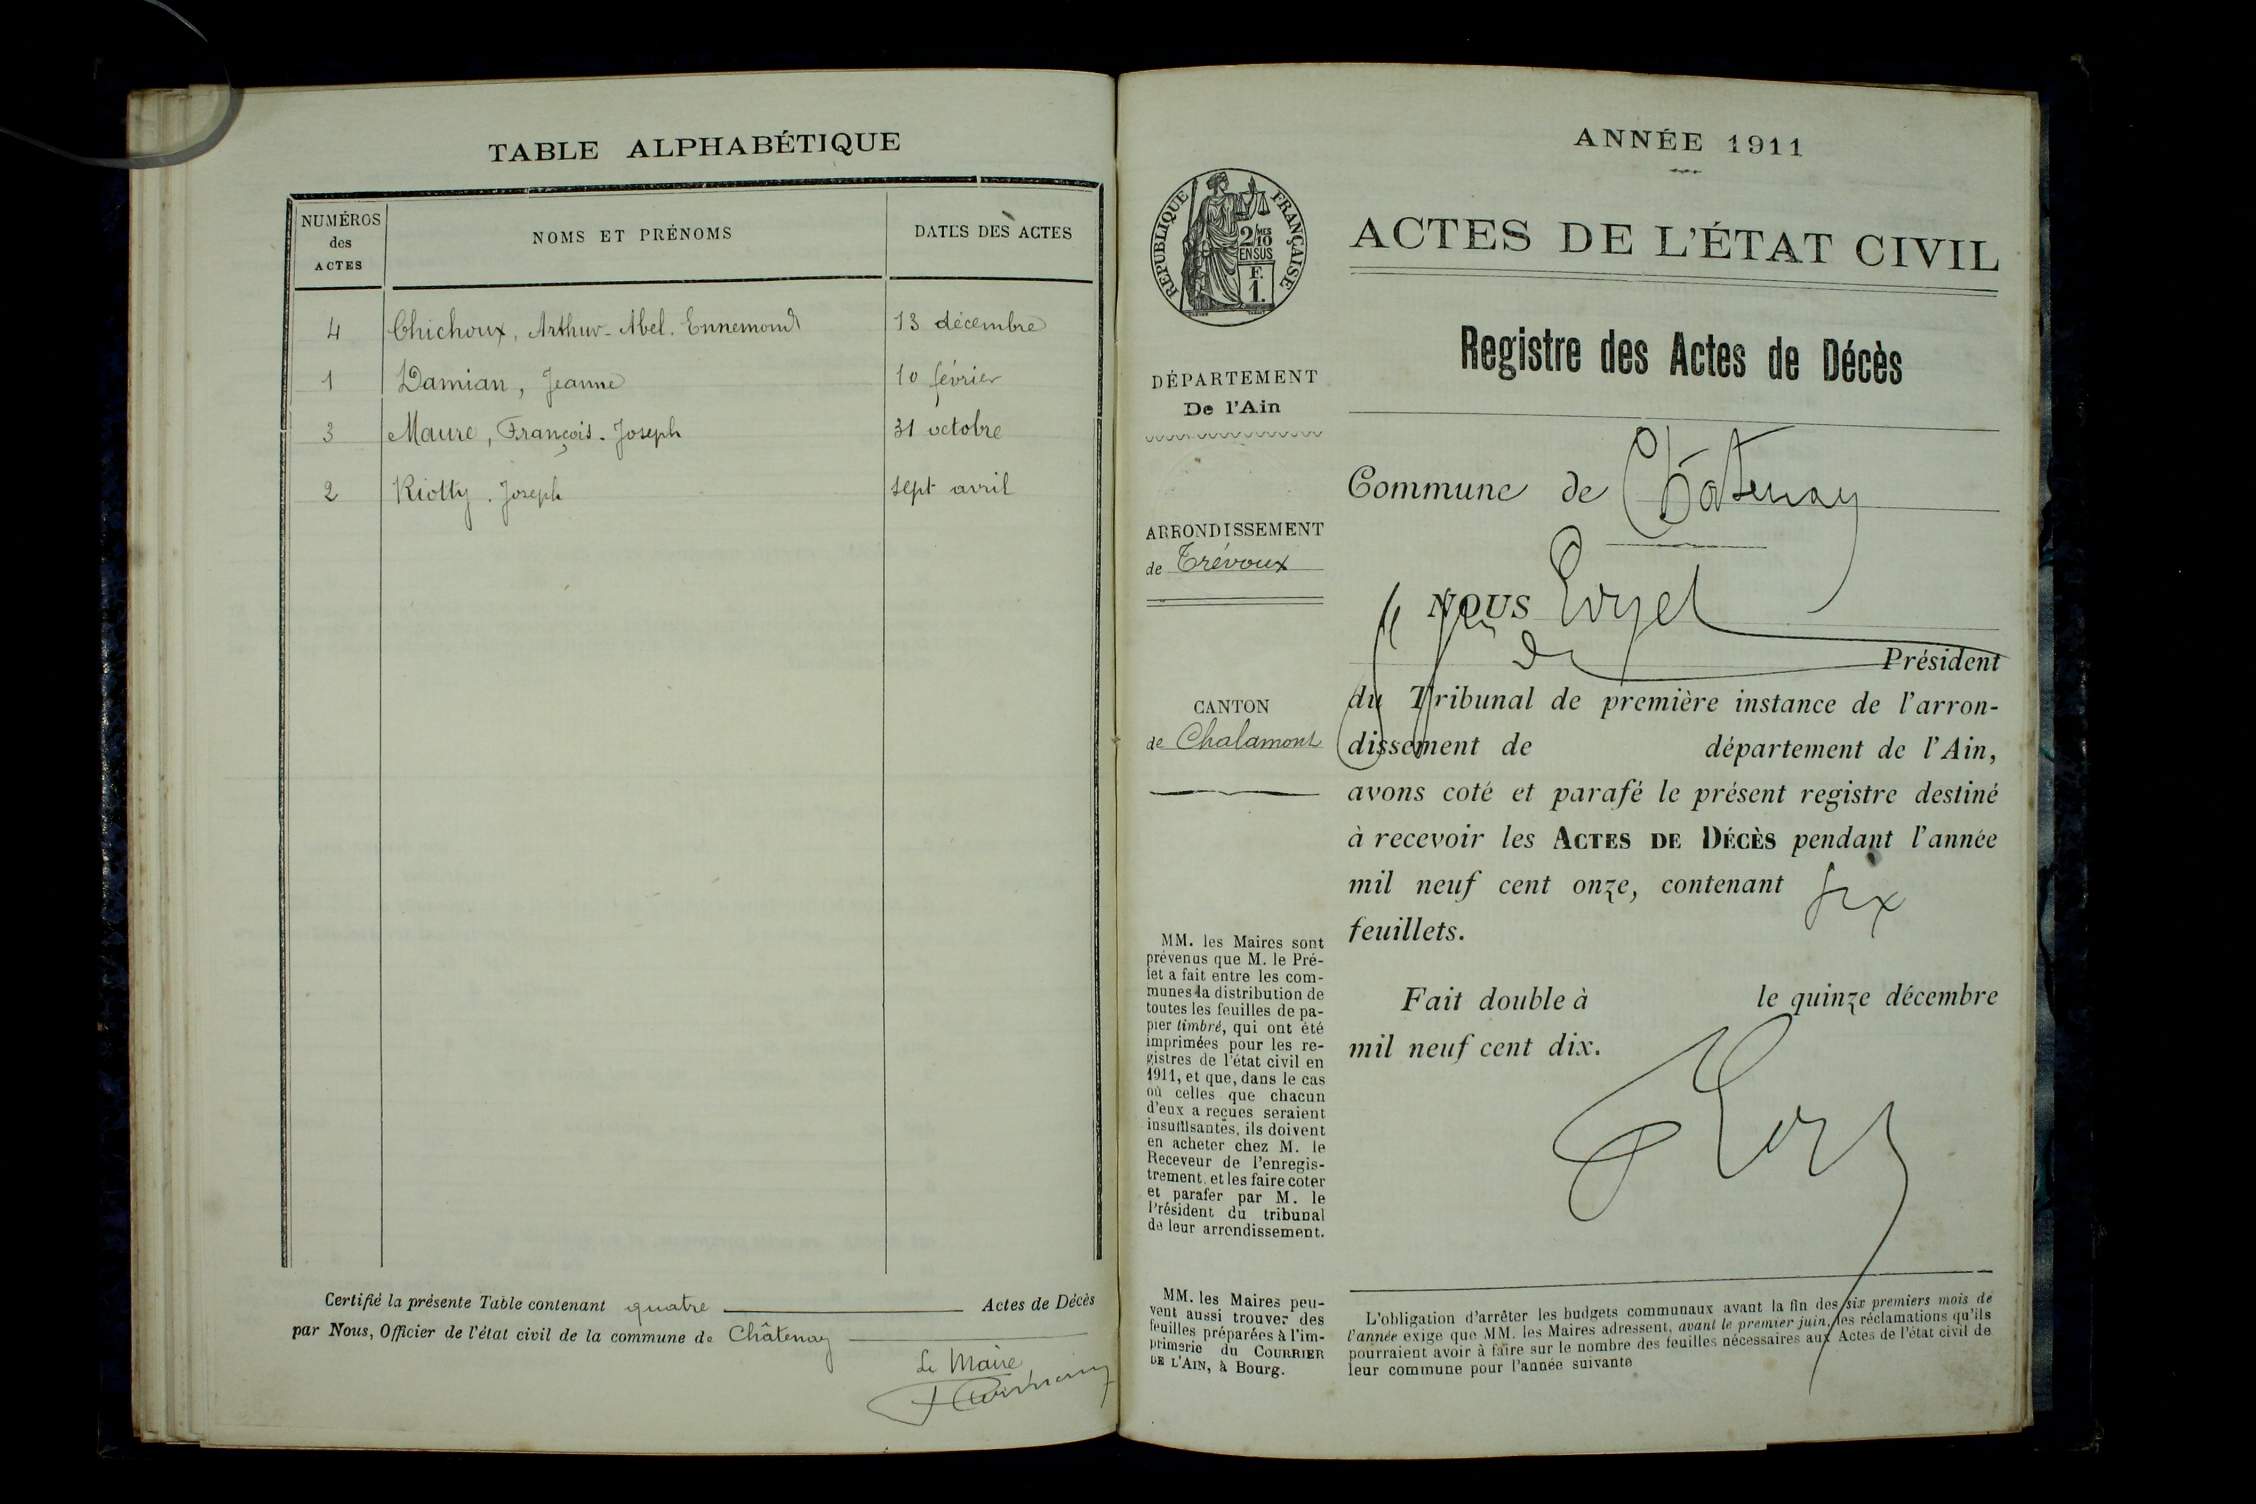 TABLE ALPHABÉTIQUE
NUMÉROS des ACTES
NOMS ET PRÉNOMS
DATES DES ACTES
4 Chichoux, Arthur-Abel. Ennemond 13 décembre
1 Damian, Jeanne 10 février
3 Maure, François-Joseph 31 octobre
2 Riotty. Joseph sept avril
Certifié la présente Table contenant quatre Actes de Décès
par Nous, Officier de l'état civil de la commune de Châtenay
Le Maire
ANNÉE 1911
RÉPUBLIQUE FRANÇAISE
2/10MES
EN SUS
F.
1.
ACTES DE L'ÉTAT CIVIL
Registre des Actes de Décès
DÉPARTEMENT
De l'Ain
ARRONDISSEMENT
de Trévoux
CANTON
de Chalamont
MM. les Maires sont
prévenus que M. le Pré-
fet a fait entre les com-
munes la distribution de
toutes les feuilles de pa-
pier timbré, qui ont été
imprimées pour les re-
gistres de l'état civil en
1911, et que, dans le cas
où celles que chacun
d'eux a reçues seraient
insuffisantes, ils doivent
en acheter chez M. le
Receveur de l'enregis-
trement, et les faire coter
et parafer par M. le
Président du tribunal
de leur arrondissement.
MM. les Maires peu-
vent aussi trouver des
feuilles préparées à l'im-
primerie du COURRIER
DE L'AIN, à Bourg.
Commune de Châtenay
NOUS
Président
du Tribunal de première instance de l'arron-
dissement de département de l'Ain,
avons coté et parafé le présent registre destiné
à recevoir les ACTES DE DÉCÈS pendant l'année
mil neuf cent onze, contenant six
feuillets.
Fait double à le quinze décembre
mil neuf cent dix.
L'obligation d'arrêter les budgets communaux avant la fin des six premiers mois de
l'année exige que MM. les Maires adressent, avant le premier juin, les réclamations qu'ils
pourraient avoir à faire sur le nombre des feuilles nécessaires aux Actes de l'état civil de
leur commune pour l'année suivante